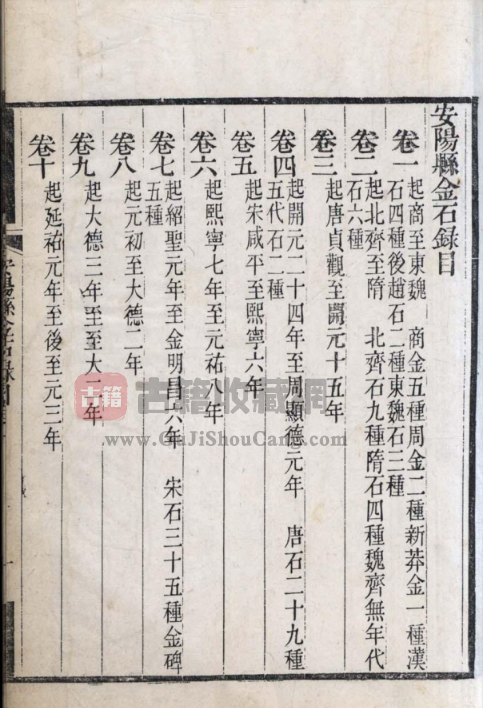 安陽縣金石錄目
卷一
起商至東魏　商金五種周金二種新莽金一種漢
石四種後趙石二種東魏石三種
卷二
起北齊至隋　北齊石九種隋石四種魏齊無年代
石六種
卷三
起唐貞觀至開元十五年
卷四
起開元二十四年至周顯德元年　唐石二十九種
五代石二種
卷五
起宋咸平至熙寧六年
卷六
起熙寧七年至元祐八年
卷七
起紹聖元年至金明昌六年　宋石三十五種金碑
五種
卷八
起元初至大德二年
卷九
起大德三年至至大二年
卷十
起延祐元年至後至元三年
古籍
古籍收藏網
www.GuJiShouCang.com